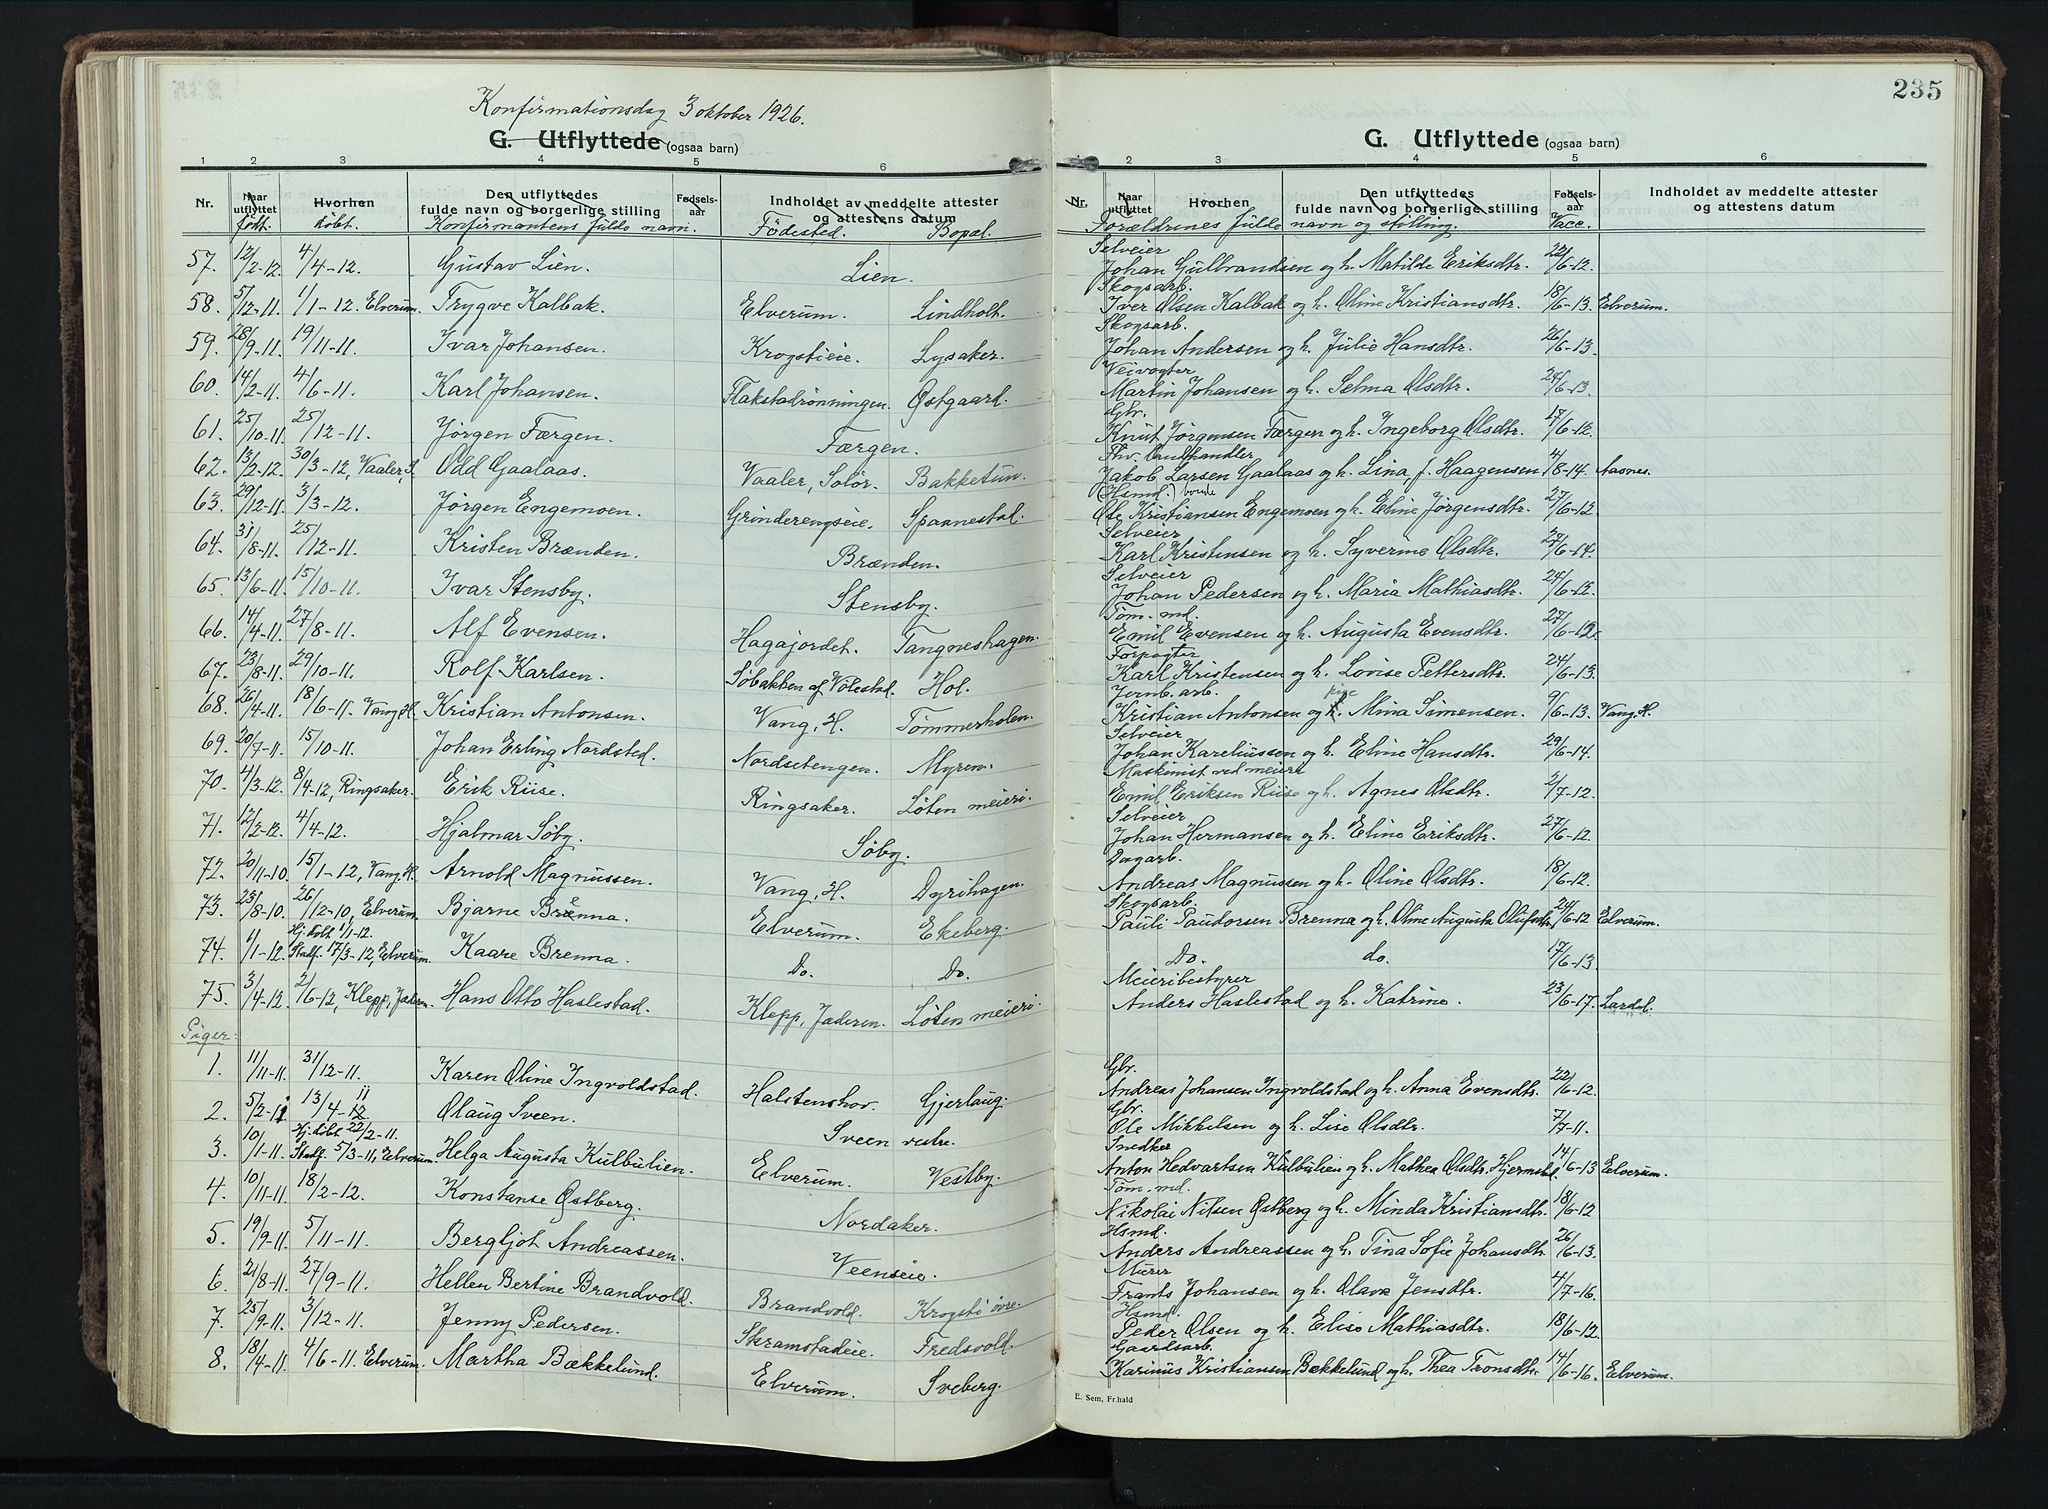 Konfirmationsdag 3 oktober 1926.
G. Utflyttede (ogsaa barn)
1 2 3 4 5 6
Nr. Naar utflyttet Hvorhen Den utflyttedes fulde navn og borgerlige stilling Fødselsaar Indholdet av meddelte attester og attestens datum
født. døbt. Konfirmantens fulde navn. Fødested. Bopæl.
57. 12/2-12. 4/4-12. Gustav Lien. Lien.
58. 5/12-11. 1/1-12. Elverum. Trygve Kalbak. Elverum. Lindholt.
59. 28/9-11. 19/11-11. Ivar Johansen. Krogstieie. Lysaker.
60. 14/2-11. 4/6-11. Karl Johansen. Flakstadrønningen. Østgaard.
61. 25/10-11. 25/12-11. Jørgen Færgen. Færgen.
62. 13/2-12. 30/3-12, Vaaler, S. Odd Gaalaas. Vaaler, Solør. Bakketun.
63. 29/12-11. 3/3-12. Jørgen Engemoen. Grinderengseie. Spannestal.
64. 31/8-11. 25/12-11. Kristen Brænden. Brænden.
65. 13/6-11. 15/10-11. Ivar Stensby. Stensby.
66. 14/4-11. 27/8-11. Alf Evensen. Hagajordet. Tangneshagen.
67. 23/8-11. 29/10-11. Rolf Karlsen. Søbakken af Vølestad. Hol.
68. 26/4-11. 18/6-11. Vang, H. Kristian Antonsen. Vang, H. Tømmerholen.
69. 20/7-11. 15/10-11. Johan Erling Nordsted. Nordsetengen. Myren.
70. 4/3-12. 8/4-12, Ringsaker. Erik Riise. Ringsaker. Løten meieri.
71. 12/2-12. 4/4-12. Hjalmar Søby. Søby.
72. 20/11-10. 15/1-12, Vang, H. Arnold Magnussen. Vang, H. Dyrihagen.
73. 23/8-10. 26/12-10, Elverum. Bjarne Brenna. Elverum. Ekeberg.
74. 1/1-12. Hj. døbt 1/1-12. Stadf. 17/3-12, Elverum. Kaare Brenna. Do. Do.
75. 3/4-12. 2/6-12, Klepp, Jæderen. Hans Otto Haslestad. Klepp, Jæderen. Løten meieri.
Piger:
1. 11/11-11. 31/12-11. Karen Oline Ingvoldstad. Halstenshov. Gjerlaug.
2. 5/2-11 13/4-11 Olaug Sveen. Sveen vestre.
3. 10/1-11. Hj. døbt 22/2-11. Stadf. 5/3-11, Elverum. Helga Augusta Kulbulien. Elverum. Vestby.
4. 10/11-11. 18/2-12. Konstanse Østberg. Nordaker.
5. 19/9-11. 5/11-11. Bergljot Andreassen. Veenseie.
6. 21/8-11. 27/9-11. Hellen Bertine Brandvold. Brandvold. Krogsti øvre.
7. 25/9-11. 3/12-11. Jenny Pedersen. Skramstadeie. Fredsvold.
8. 18/4-11. 4/6-11. Elverum. Martha Bækkelund. Elverum. Sveberg.
235
G. Utflyttede (ogsaa barn)
1 2 3 4 5 6
Nr. Naar utflyttet Hvorhen Den utflyttedes fulde navn og borgerlige stilling Fødselsaar Indholdet av meddelte attester og attestens datum
Forældrenes fulde navn og stilling. Vacc.
Selveier
Johan Gulbrandsen og h. Matilde Eriksdtr. 22/6-12.
Skogsarb.
Iver Olsen Kalbak og h. Oline Kristiansdtr. 18/6-13. Elverum.
Skogsarb.
Johan Andersen og h. Julie Hansdtr. 26/6-13.
Veivogter
Martin Johansen og h. Selma Olsdtr. 24/6-13.
Gbr.
Knut Jørgensen Færgen og h. Ingeborg Olsdtr. 17/6-12.
Fhv. Landhandler
Jakob Larsen Gaalaas og h. Lina, f. Haagensen 4/8-14. Aasnes.
(Hsmd.) boende
Ole Kristiansen Engemoen og h. Eline Jørgensdtr. 27/6-12.
Selveier
Karl Kristensen og h. Syverine Olsdtr. 27/6-14.
Selveier
Johan Pedersen og h. Maria Mathiasdtr. 24/6-12.
Tøm. md.
Emil Evensen og h. Augusta Evensdtr. 27/6-12.
Forpagter
Karl Kristensen og h. Lovise Pettersdtr. 24/6-13.
Jernb. arb.
Kristian Antonsen og pige Mina Simensen. 9/6-13. Vang, H.
Selveier
Johan Kareliussen og h. Eline Hansdtr. 29/6-14.
Maskinist ved meieri
Emil Eriksen Riise og h. Agnes Olsdtr. 2/7-12.
Selveier
Johan Hermansen og h. Eline Eriksdtr. 27/6-12.
Dagarb.
Andreas Magnussen og h. Oline Olsdtr. 18/6-12.
Skogsarb.
Pauli Paudorsen Brenna og h. Oline Augusta Olufsdtr. 24/6-12 Elverum.
Do. do. 17/6-13.
Meieribestyrer
Anders Haslestad og h. Katrine. 23/6-17. Lardal.
Gbr.
Andreas Johansen Ingvoldstad og h. Anna Evensdtr. 22/6-12.
Gbr.
Ole Mikkelsen og h. Lise Olsdtr. 7/7-11.
Snedker
Anton Hedvartsen Kulbulien og h. Mathea Olsdtr. Hjermstad. 14/6-13 Elverum.
Tøm. md.
Nikolai Nilsen Østberg og h. Minda Kristiansdtr. 18/6-12
Hsmd.
Anders Andreassen og h. Tina Sofie Johansdtr. 26/6-13.
Murer
Frants Johansen og h. Olava Jensdtr. 4/7-16.
Hsmd.
Peder Olsen og h. Elise Mathiasdtr. 18/6-12.
Gaardsarb.
Karinus Kristiansen Bækkelund og h. Thea Tronsdtr. 14/6-16. Elverum.
E. Sem, Fr.hald